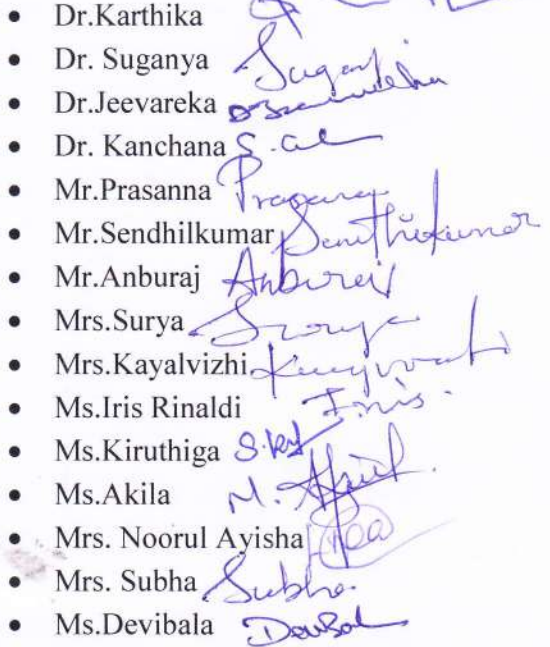 • Dr.Karthika
• Dr. Suganya Sugany
• Dr.Jeevareka
• Dr. Kanchana S.
• Mr.Prasanna Prasana
• Mr.Sendhilkumar Senthilkumar
• Mr.Anburaj Anburaj
• Mrs.Surya Surya
• Mrs.Kayalvizhi
• Ms.Iris Rinaldi Iris.
• Ms.Kiruthiga S.
• Ms.Akila M. Akil.
• Mrs. Noorul Ayisha
• Mrs. Subha Subha
• Ms.Devibala DeviBal